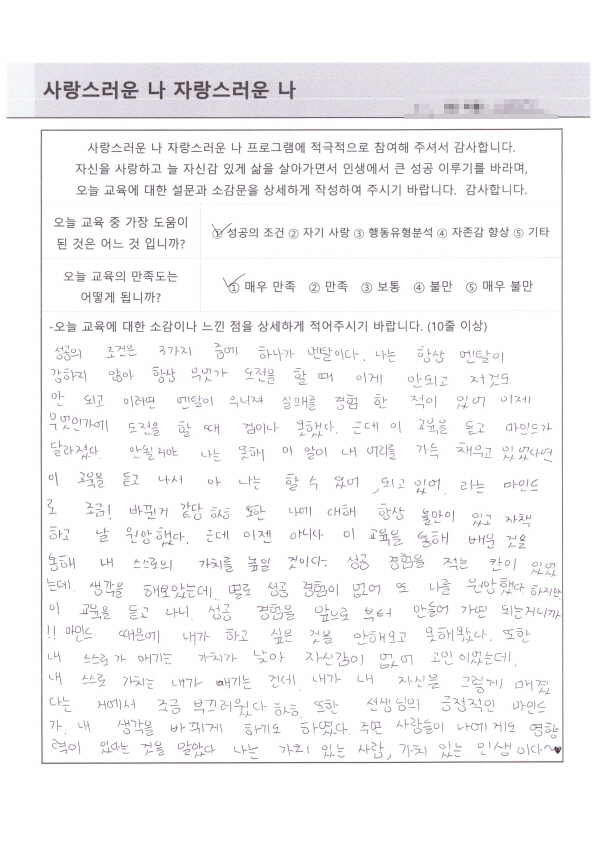 사랑스러운 나 자랑스러운 나
사랑스러운 나 자랑스러운 나 프로그램에 적극적으로 참여해 주셔서 감사합니다.
자신을 사랑하고 늘 자신감 있게 삶을 살아가면서 인생에서 큰 성공 이루기를 바라며,
오늘 교육에 대한 설문과 소감문을 상세하게 작성하여 주시기 바랍니다. 감사합니다.
오늘 교육 중 가장 도움이
된 것은 어느 것 입니까?
① 성공의 조건 ② 자기 사랑 ③ 행동유형분석 ④ 자존감 향상 ⑤ 기타
오늘 교육의 만족도는
어떻게 됩니까?
① 매우 만족 ② 만족 ③ 보통 ④ 불만 ⑤ 매우 불만
-오늘 교육에 대한 소감이나 느낀 점을 상세하게 적어주시기 바랍니다. (10줄 이상)
성공의 조건은 3가지 중에 하나가 멘탈이다. 나는 항상 멘탈이
강하지 않아 항상 무엇가 도전을 할 때 이게 안되고 저것도
안 되고 이러면 멘탈이 무너져 실패를 경험 한 적이 있어 이제
무엇인가에 도전을 할 때 겁이나 못했다. 근데 이 교육을 듣고 마인드가
달라졌다. 안될거야 나는 못해 이 말이 내 머리를 가득 채우고 있었다면
이 교육을 듣고 나서 아 나는 할 수 있어, 되고 있어. 라는 마인드
로 조금! 바뀐게 같당 ㅎㅎ 또한 나에 대해 항상 불만이 있고 자책
하고 날 원망했다. 근데 이젠 아니다 이 교육을 통해 배운 것을
통해 내 스스로의 가치를 높일 것이다. 성공 경험을 적는 칸이 있었
는데. 생각을 해보았는데 별로 성공 경험이 없어 또 나를 원망했다. 하지만
이 교육을 듣고 나니. 성공 경험을 앞으로 부터 만들어 가면 되는거니까
!! 마인드 때문에 내가 하고 싶은 것을 안해보고 못해봤다. 또한
내 스스로가 매기는 가치가 낮아 자신감이 없어 고민이었는데.
내 스스로 가치는 내가 매기는 건데. 내가 내 자신을 그렇게 매겼
다는 거에서 조금 부끄러웠다 ㅎㅎ. 또한 선생님의 긍정적인 마인드
가. 내 생각을 바뀌게 하기도 하였다. 주변 사람들이 나에게도 영향
력이 있다는 것을 말았다 나는 가치 있는 사람, 가치 있는 인생이다~♥